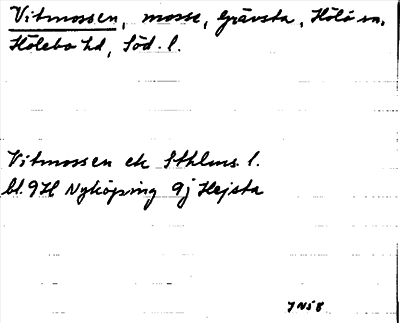 Vitmossen, mosse, Grävsta, Hölö sn,
Hölebo hd, Söd. l.
Vitmossen ek Sthlms. l.
bl. 9H Nyköping 9j Hejsta
JNSB